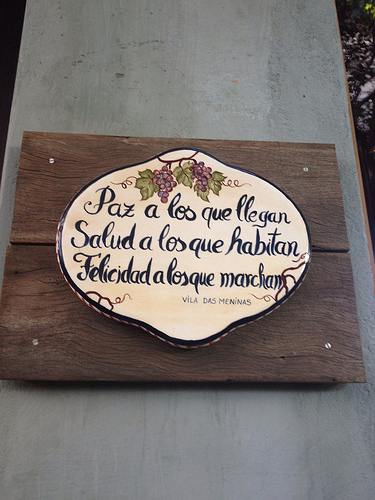 Paz a los que llegan
Salud a los que habitan
Felicidad a los que marchan
VILA DAS MENINAS